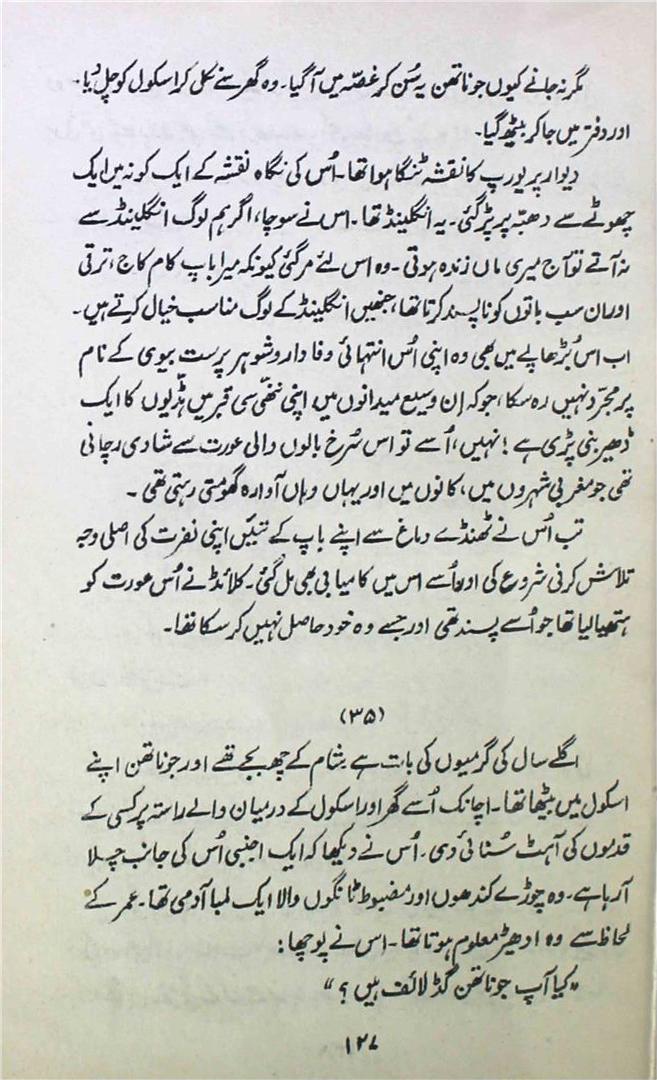 مگر نہ جانے کیوں جوناتھن یہ سُن کر غصّہ میں آ گیا۔ وہ گھر سے نکل کر اسکول کو چل دیا۔
اور دفتر میں جا کر بیٹھ گیا۔
دیوار پر یورپ کا نقشہ ٹنگا ہوا تھا۔ اُس کی نگاہ نقشہ کے ایک کونہ میں ایک
چھوٹے سے دھبّہ پر پڑ گئی۔ یہ انگلینڈ تھا۔ اس نے سوچا، اگر ہم لوگ انگلینڈ سے
نہ آتے تو آج میری ماں زندہ ہوتی۔ وہ اس لئے مر گئی کیونکہ میرا باپ کام کاج، ترقی
اور ان سب باتوں کو ناپسند کرتا تھا، جنھیں انگلینڈ کے لوگ مناسب خیال کرتے ہیں۔
اب اس بُڑھاپے میں بھی وہ اپنی اُس انتہائی وفادار و شوہر پرست بیوی کے نام
پر مجرّد نہیں رہ سکا، جو کہ اِن وسیع میدانوں میں اپنی ننھّی سی قبر میں ہڈّیوں کا ایک
ڈھیر بنی پڑی ہے! نہیں، اُسے تو اس سُرخ بالوں والی عورت سے شادی رچانی
تھی جو مغربی شہروں میں، کانوں میں اور یہاں وہاں آوارہ گھومتی رہتی تھی۔
تب اُس نے ٹھنڈے دماغ سے اپنے باپ کے تئیں اپنی نفرت کی اصلی وجہ
تلاش کرنی شروع کی اور اُسے اس میں کامیابی بھی مل گئی۔ کلائڈ نے اُس عورت کو
ہتھیا لیا تھا جو اُسے پسند تھی اور جسے وہ خود حاصل نہیں کر سکا تھا۔
(۳۵)
اگلے سال کی گرمیوں کی بات ہے شام کے چھ بجے تھے اور جوناتھن اپنے
اسکول میں بیٹھا تھا۔ اچانک اُسے گھر اور اسکول کے درمیان والے راستہ پر کسی کے
قدموں کی آہٹ سُنائی دی۔ اُس نے دیکھا کہ ایک اجنبی اُس کی جانب چلا
آ رہا ہے۔ وہ چوڑے کندھوں اور مضبوط ٹانگوں والا ایک لمبا آدمی تھا۔ عمر کے
لحاظ سے وہ ادھیڑ معلوم ہوتا تھا۔ اس نے پوچھا:
”کیا آپ جوناتھن گڈ لائف ہیں؟“
۱۲۷